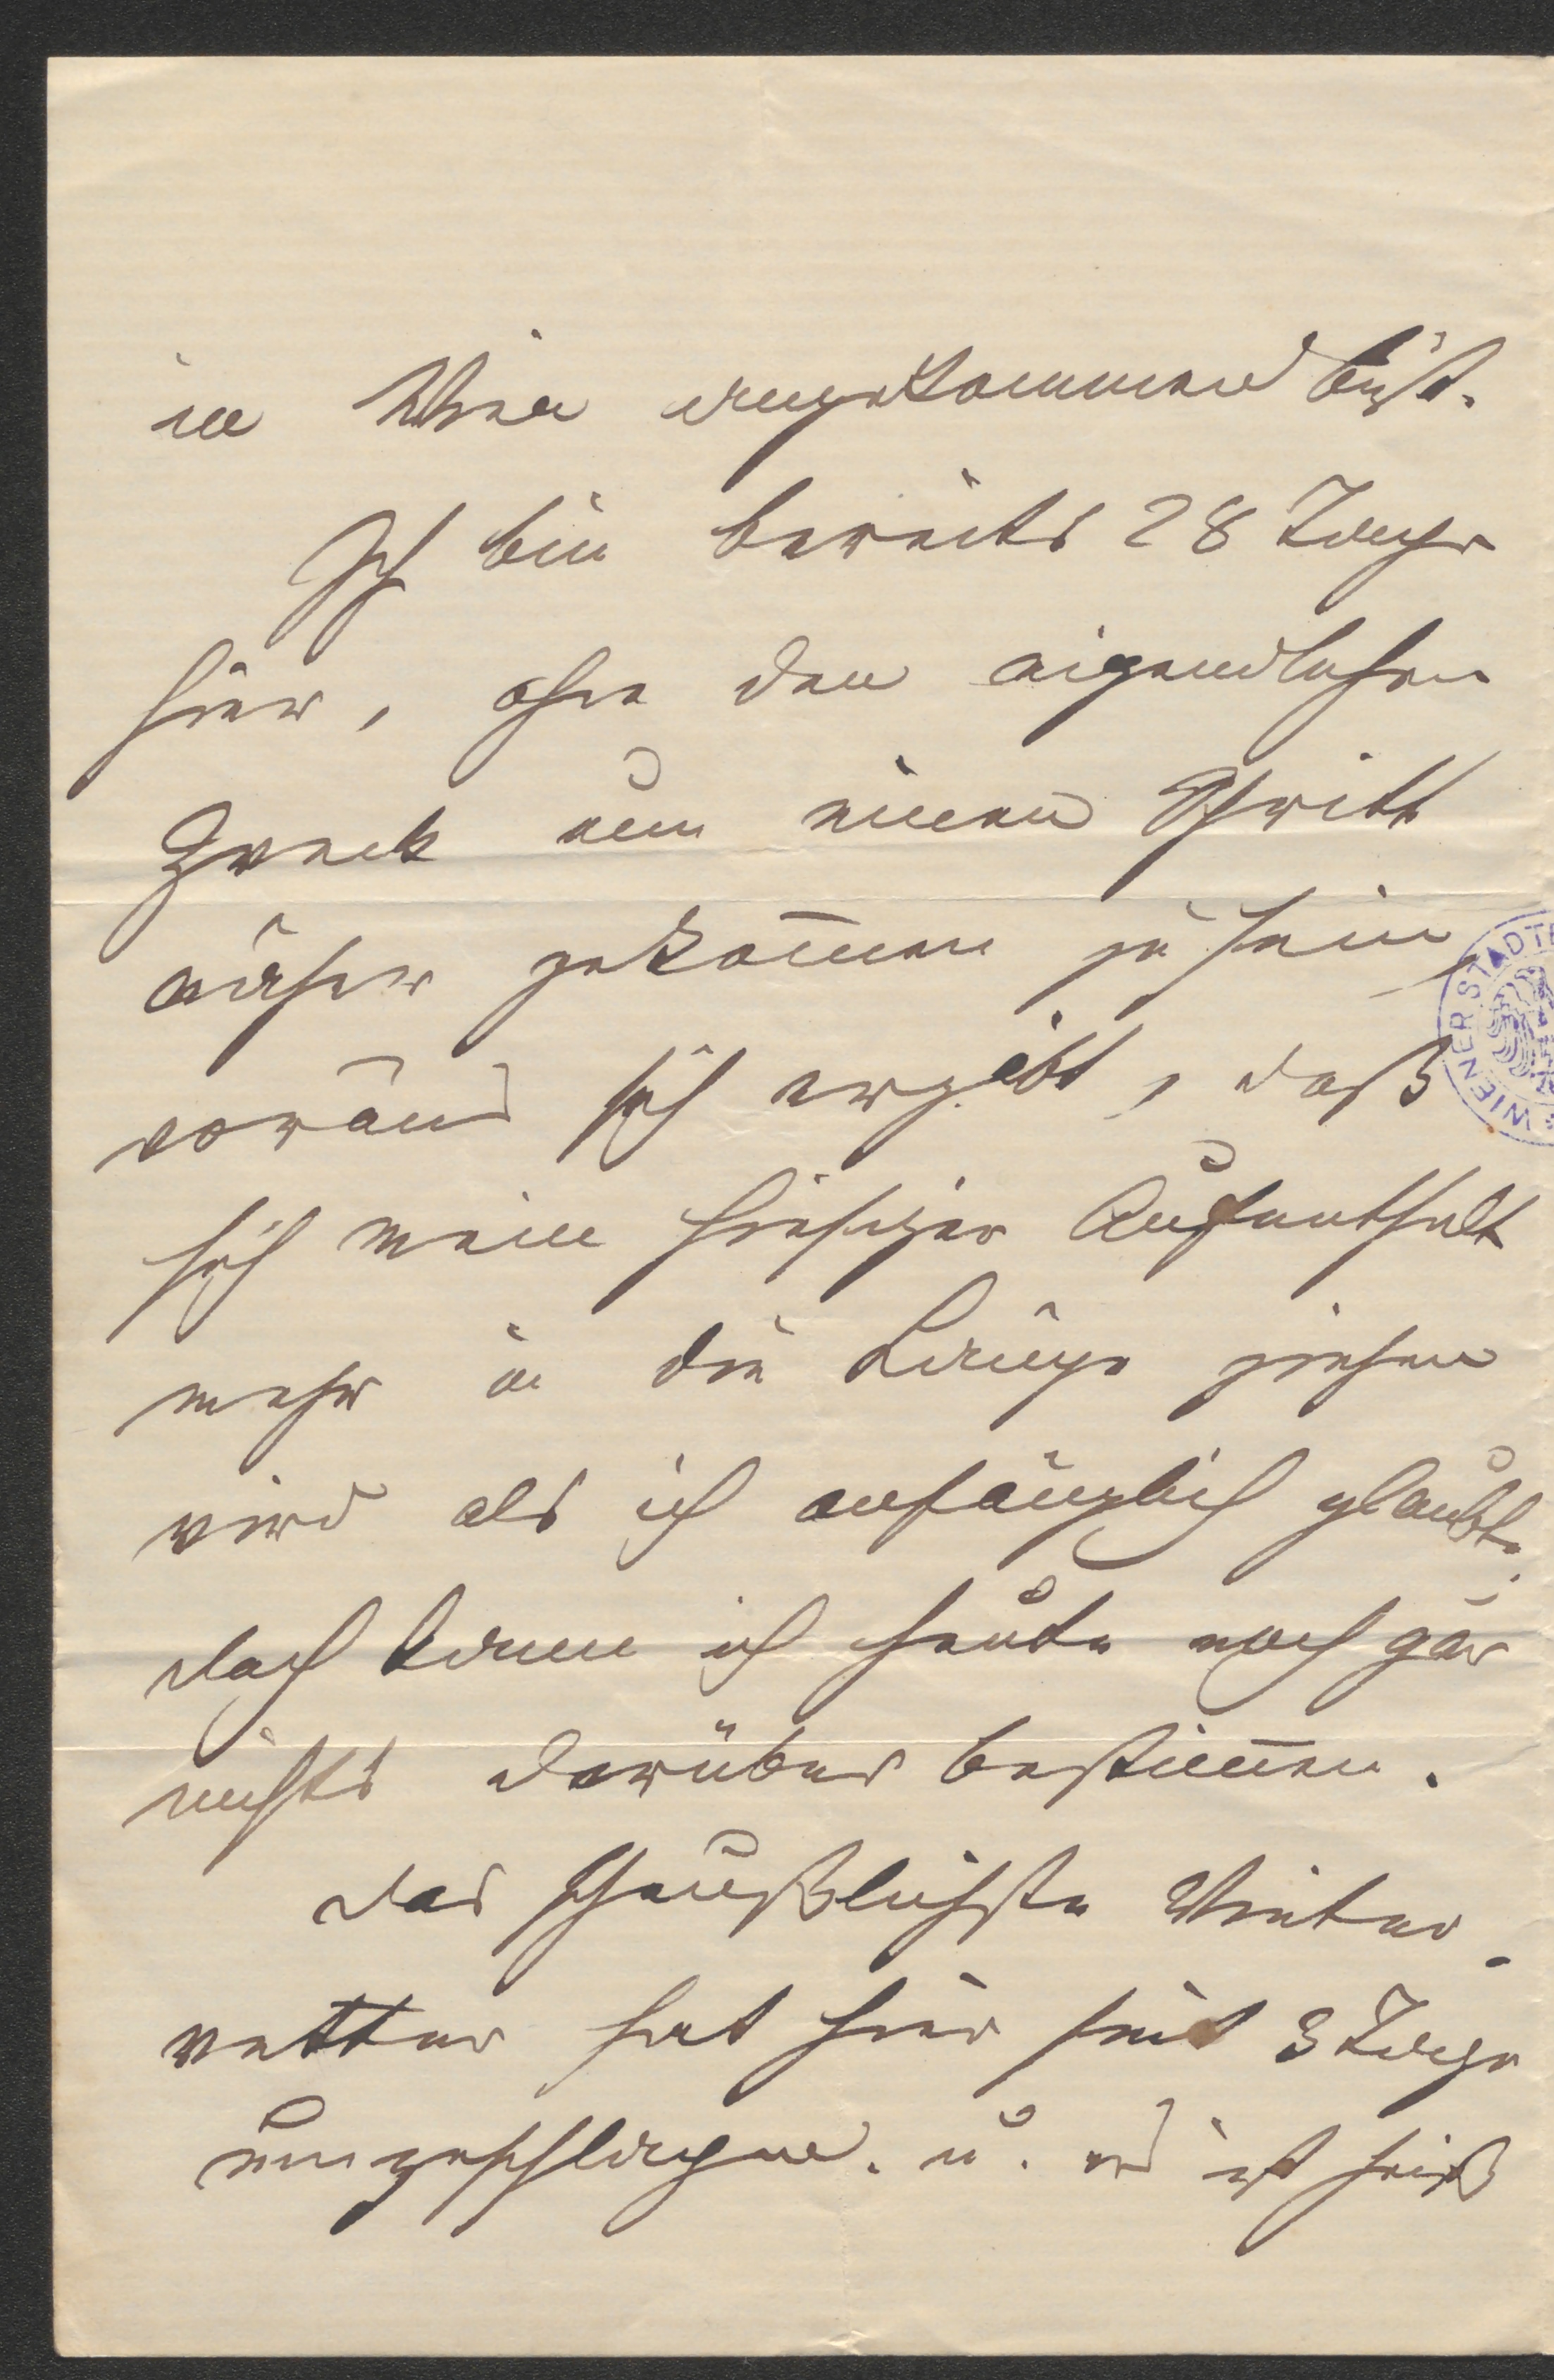 in Wien angekommen bist.
Ich bin bereits 28 Tage
hier, ohne dem eigendlichen
Zweck um einen Schritt
näher gekom̅en zu sein,
woraus sich ergibt, daß
sich mein hiesiger Aufenthalt
mehr in die Länge ziehen
wird als ich anfänglich glaubte.
doch kann ich heute noch gar
nichts darüber bestim̅en.
Das scheußlichste Winter-
wetter hat hier seit 3 Tage
umgeschlagen. u. es ist heiß
WIENER STADT